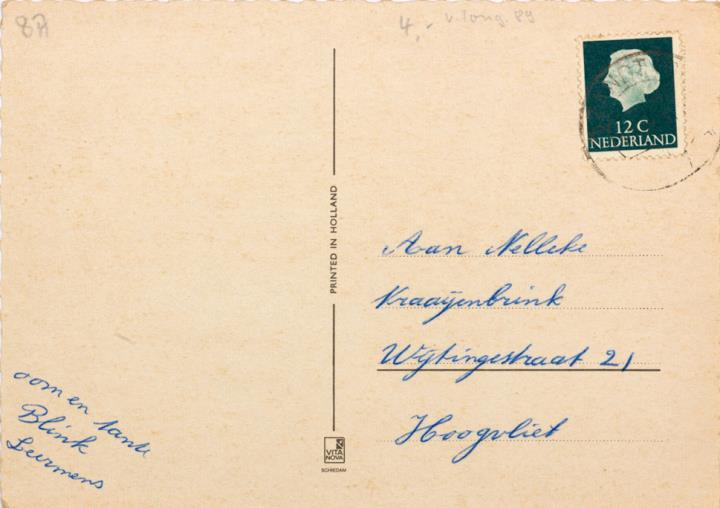 87
4,- v. Tong. 89
12 C
NEDERLAND
PRINTED IN HOLLAND
Aan Nelleke
Kraayenbrink
Wijtingestraat 21
Hoogvliet
oom en tante
Blink
Leermens
VITA
NOVA
SCHIEDAM